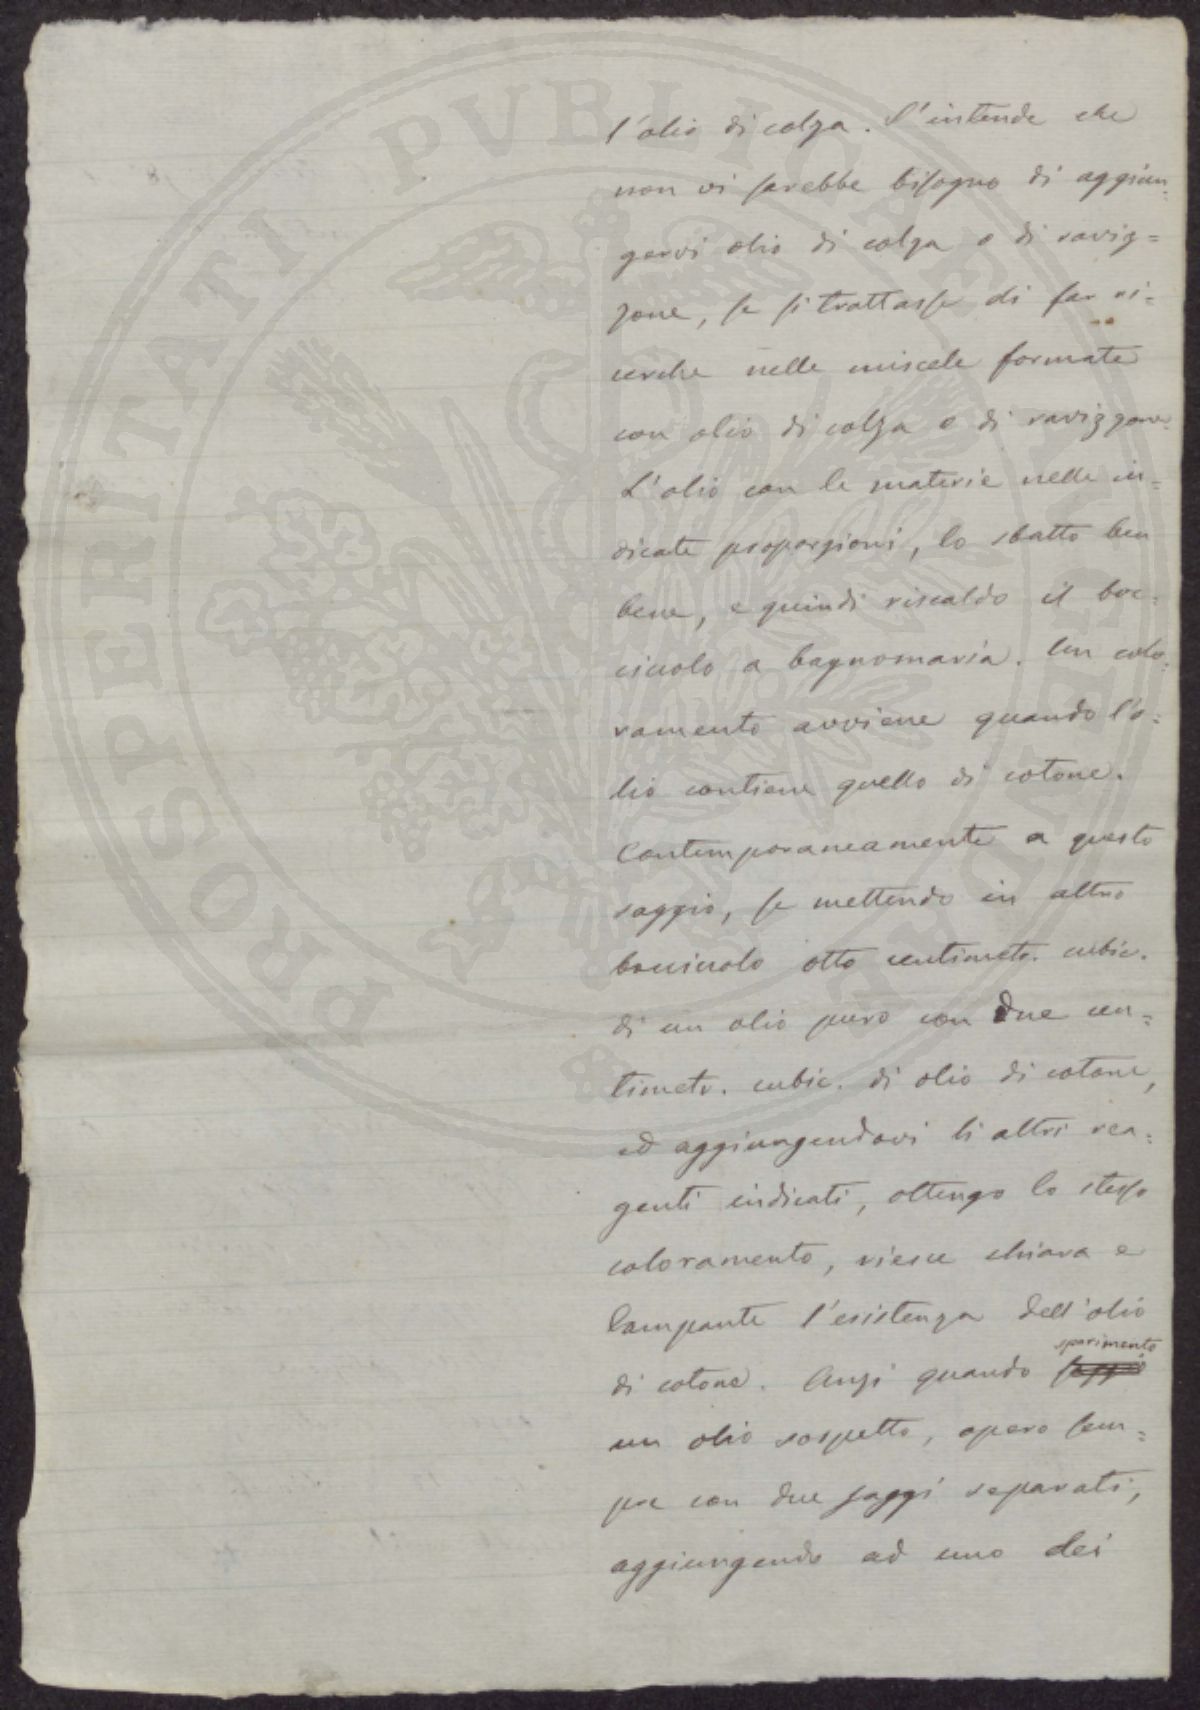 l'olio di colza. S'intende che
non vi sarebbe bisogno di aggiun-
gervi olio di colza o di raviz=
zone, se si trattasse di far ri-
cerche nelle miscele formate
con olio di colza e di ravizzone.
L'olio con le materie nelle in=
dicate proporzioni, lo sbatto ben
bene, e quindi riscaldo il boc=
ciuolo a bagnomaria. Un colo-
ramento avviene quando l'o=
lio contiene quello di cotone.
Contemporaneamente a questo
saggio, se mettendo in altro
bocciuolo otto centimetr. cubic.
di un olio puro con due cen=
timetr. cubic. di olio di cotone,
ed aggiungendovi li altri rea=
genti indicati, ottengo lo stesso
coloramento, riesce chiara e
lampante l'esistenza dell'olio
sperimento
di cotone. Anzi quando saggio
un olio sospetto, opero sem=
pre con due saggi separati,
aggiungendo ad uno dei
PROSPERITATI PVBLICAE AVGENDAE